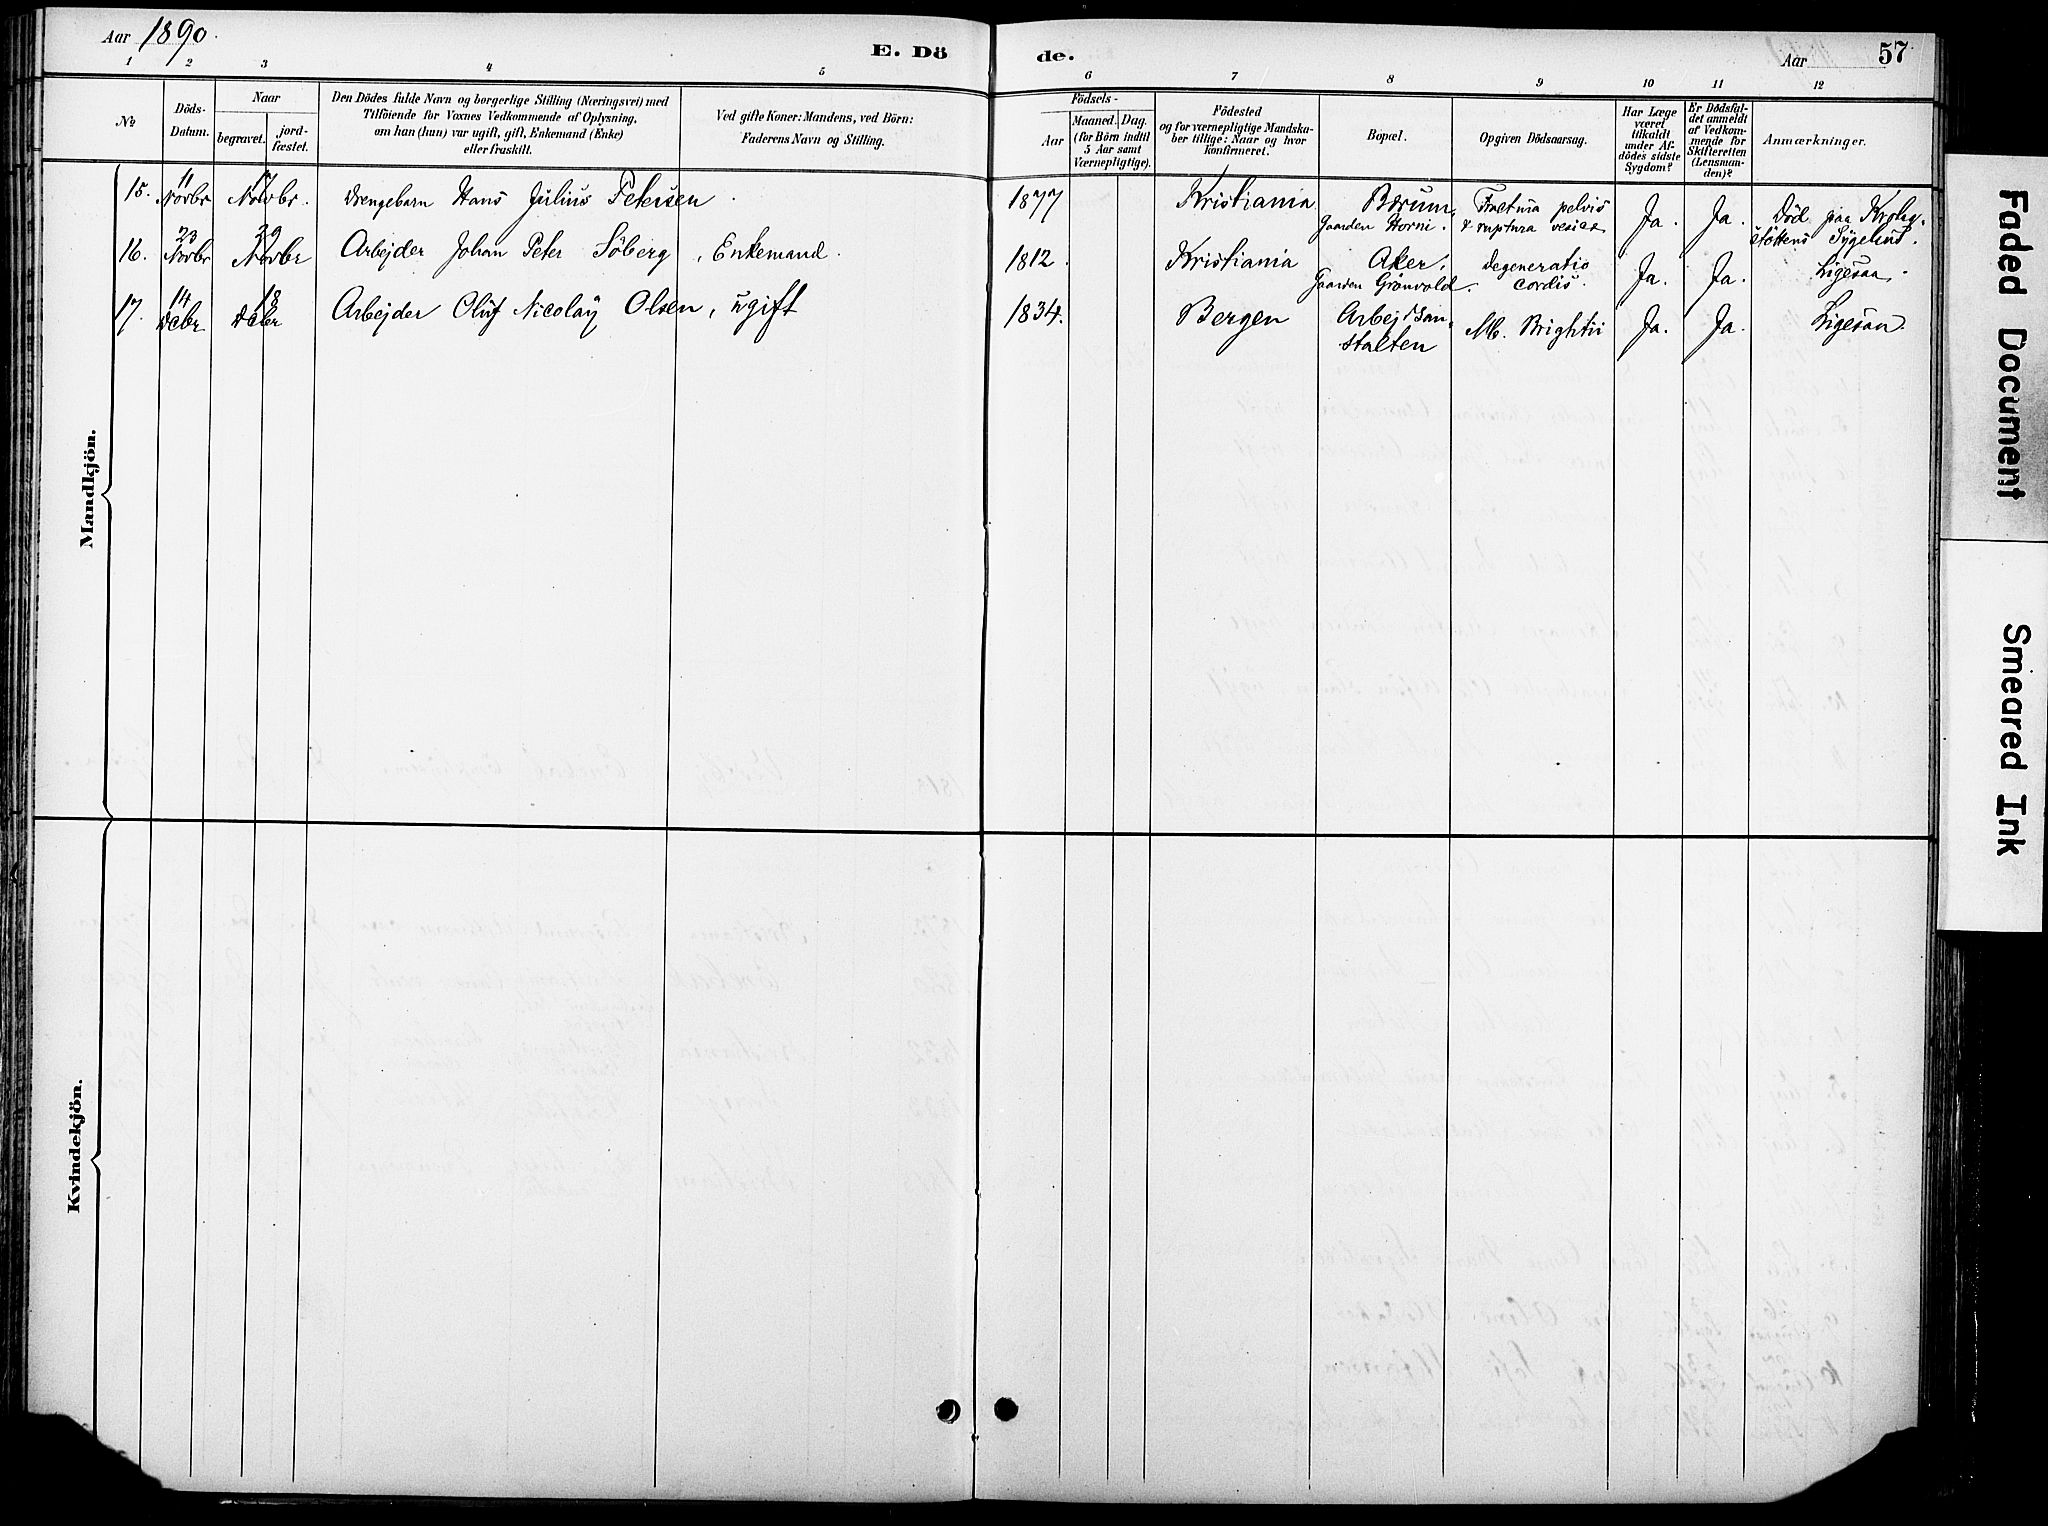 Aar 1890.
E. Dö
de.
Aar
57
1 2 3 4 5
6 7 8 9 10 11 12
№
Döds-
Datum.
Naar
begravet.
jord-
fæstet.
Den Dödes fulde Navn og borgerlige Stilling (Næringsvei) med
Tilföiende for Voxnes Vedkommende af Oplysning,
om han (hun) var ugift, gift, Enkemand (Enke)
eller fraskilt.
Ved gifte Koner: Mandens, ved Börn:
Faderens Navn og Stilling.
Födsels-
Aar
Maaned. Dag.
(for Börn indtil
5 Aar samt
Værnepligtige).
Födested
og for værnepligtige Mandska-
ber tillige: Naar og hvor
konfirmeret.
Bopæl.
Opgiven Dödsaarsag.
Har Læge
været
tilkaldt
under Af-
dödes sidste
Sygdom?
Er Dödsfal-
det anmeldt
af Vedkom-
mende for
Skifteretten
(Lensman-
den)?
Anmærkninger.
Mandkjön.
15. 11 Novbr 17 Novbr. Drengebarn Hans Julius Petersen 1877 Kristiania Bærum, Gaarden Horni. Fractura pelvis & ruptura vesicæ Ja. Ja. Död paa Krohg-
stöttens Sygehus.
16. 23 Novbr 29 Novbr Arbejder Johan Peter Söberg, Enkemand. 1812. Kristiania Aker, Gaarden Grönvold. Degeneratio cordis. Ja. Ja. Ligesaa.
17. 14 Dcbr. 18 Dcbr Arbejder Oluf Nicolay Olsen, ugift 1834. Bergen Arbejdsan-
stalten M. Brightii Ja. Ja. Ligesaa.
Kvindekjön.
Faded Document
Smeared Ink